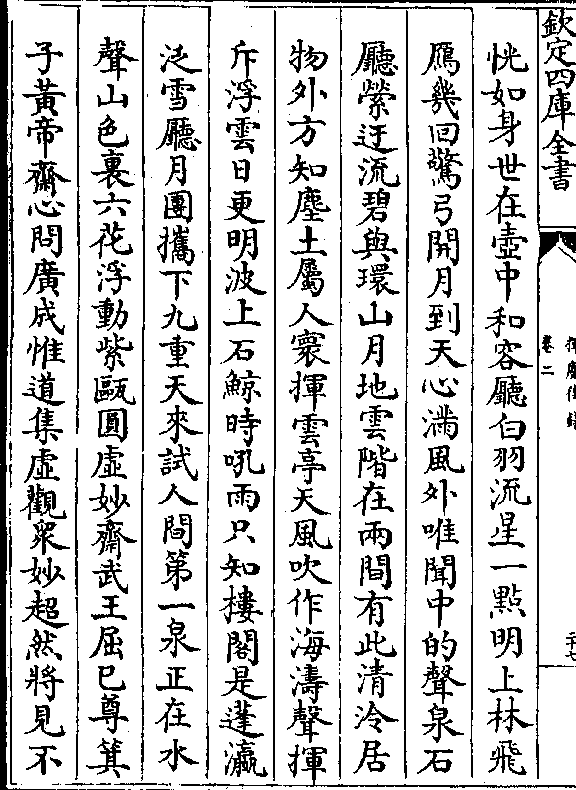 欽定四庫全書
卷二
恍如身世在壺中和容廳白羽流星一點明上林飛
鴈幾回驚弓開月到天心滿風外唯聞中的聲泉石
廳縈迂流碧與環山月地雲階在兩間有此清泠居
物外方知塵土屬人寰揮雲亭天風吹作海濤聲揮
斥浮雲日更明波上石鯨時吼雨只知樓閣是蓬瀛
泛雪廳月團攜下九重天來試人間第一泉正在水
聲山色裏六花浮動紫甌圓虛妙齋武王屈已尊箕
子黃帝齋心問廣成惟道集虛觀衆妙超然將見不